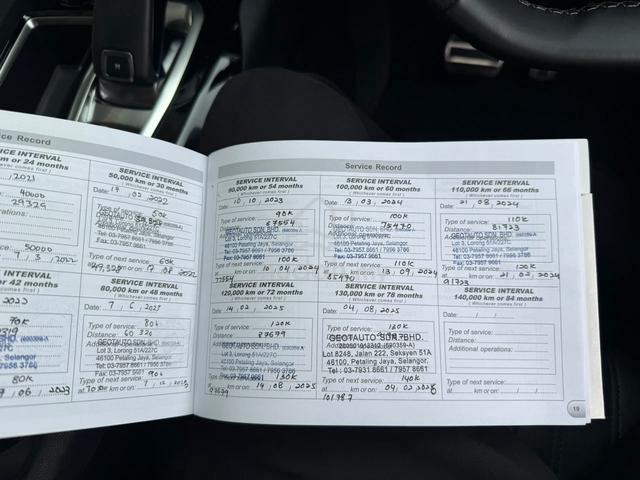 ce Record
m or 24 months
comes first )
, 2021
40000
29325
rations:
50000
7 , 3 , 2022
or 42 months
comes first )
2022
70k
Selangor
80k
06 , 2023
SERVICE INTERVAL
50,000 km or 30 months
( Whichever comes first )
Date: 17 , 02 2022
Type of service: 50k
GEOTAUTO SDN BHD.
Lot 3, Lorong 51A/227C
46100 Petaling Jaya, Selangor.
Tel: 03-7957 8661 / 7956 3786
Fax: 03-7957 9661
Type of next service: 60k
km or on: 17 08 2022
SERVICE INTERVAL
80,000 km or 48 months
( Whichever comes first )
Date: 7 , 6 , 2023
Type of service: 80k
Distance: 60 320
GEOTAUTO SDN BHD.
Lot 3, Lorong 51A/227C
46100 Petaling Jaya, Selangor.
Tel: 03-7957 8661 / 7956 3786
Fax: 03-7957 9661
Type of next service: 90k
km or on: 7 , 12 ,
Service Record
SERVICE INTERVAL
90,000 km or 54 months
( Whichever comes first )
Date: 10 , 10 , 2023
Type of service: 90k
Distance: 67554
GEOTAUTO SDN BHD.
Lot 3, Lorong 51A/227C
46100 Petaling Jaya, Selangor.
Tel: 03-7957 8661 / 7956 3786
Fax: 03-7957 9661
Type of next service: 100k
at 77554 km or on: 10 , 04 , 2024
SERVICE INTERVAL
100,000 km or 60 months
( Whichever comes first )
Date: 13 , 03 , 2024
Type of service: 100k
Distance: 75470
GEOTAUTO SDN BHD.
Lot 3, Lorong 51A/227C
46100 Petaling Jaya, Selangor.
Tel: 03-7957 8661 / 7956 3786
Fax: 03-7957 9661
Type of next service: 110k
at 85470 km or on: 13 , 09 , 2024
SERVICE INTERVAL
110,000 km or 66 months
( Whichever comes first )
Date: 21 , 08 , 2024
Type of service: 110k
Distance: 81723
GEOTAUTO SDN BHD.
Lot 3, Lorong 51A/227C
46100 Petaling Jaya, Selangor.
Tel: 03-7957 8661 / 7956 3786
Fax: 03-7957 9661
Type of next service: 120k
at 91723 km or on: 21 , 02 , 2024
SERVICE INTERVAL
120,000 km or 72 months
( Whichever comes first )
Date: 14 , 02 , 2025
Type of service: 120k
Distance: 87679
GEOTAUTO SDN BHD.
Lot 3, Lorong 51A/227C
46100 Petaling Jaya, Selangor.
Tel: 03-7957 8661 / 7956 3786
Fax: 03-7957 9661
Type of next service: 130k
at 97679 km or on: 14 , 08 , 2025
SERVICE INTERVAL
130,000 km or 78 months
( Whichever comes first )
Date: 04 , 08 , 2025
Type of service: 130k
GEOTAUTO SDN. BHD.
Lot 8248, Jalan 222, Seksyen 51A
46100, Petaling Jaya, Selangor.
Tel: 03-7931 8661 / 7957 8661
Type of next service: 140k
at 101787 km or on: 04 , 02 , 2026
SERVICE INTERVAL
140,000 km or 84 months
( Whichever comes first )
Date: / /
Type of service:
Distance:
Additional operations:
Type of next service:
at km or on: / /
19